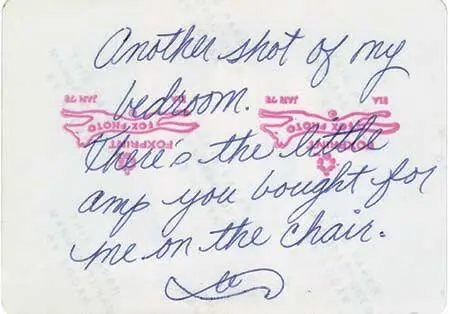 Another shot of my
bedroom.
JAN 78 EIA JAN 78 EIA
FOX PHOTO FOX PHOTO
FOXPRINT FOXPRINT
There's the little
amp you bought for
me on the chair.